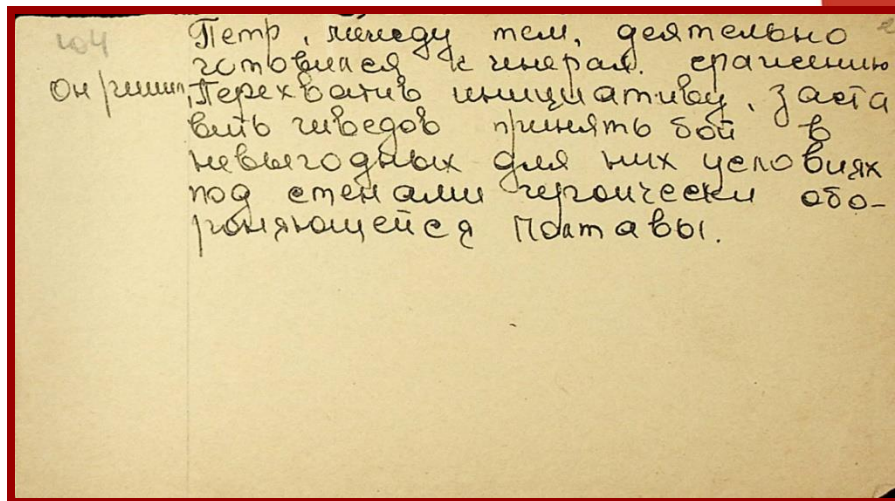 104 Петр, между тем, деятельно
готовился к генерал. сражению
Он решил, Перехватив инициативу, заста
вить шведов принять бой в
невыгодных для них условиях
под стенами героически обо-
роняющейся Полтавы.